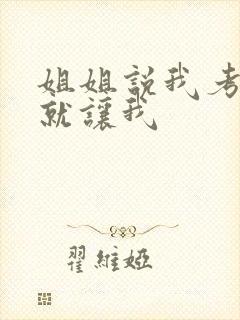 姐姐說我考
就讓我
翟維婭